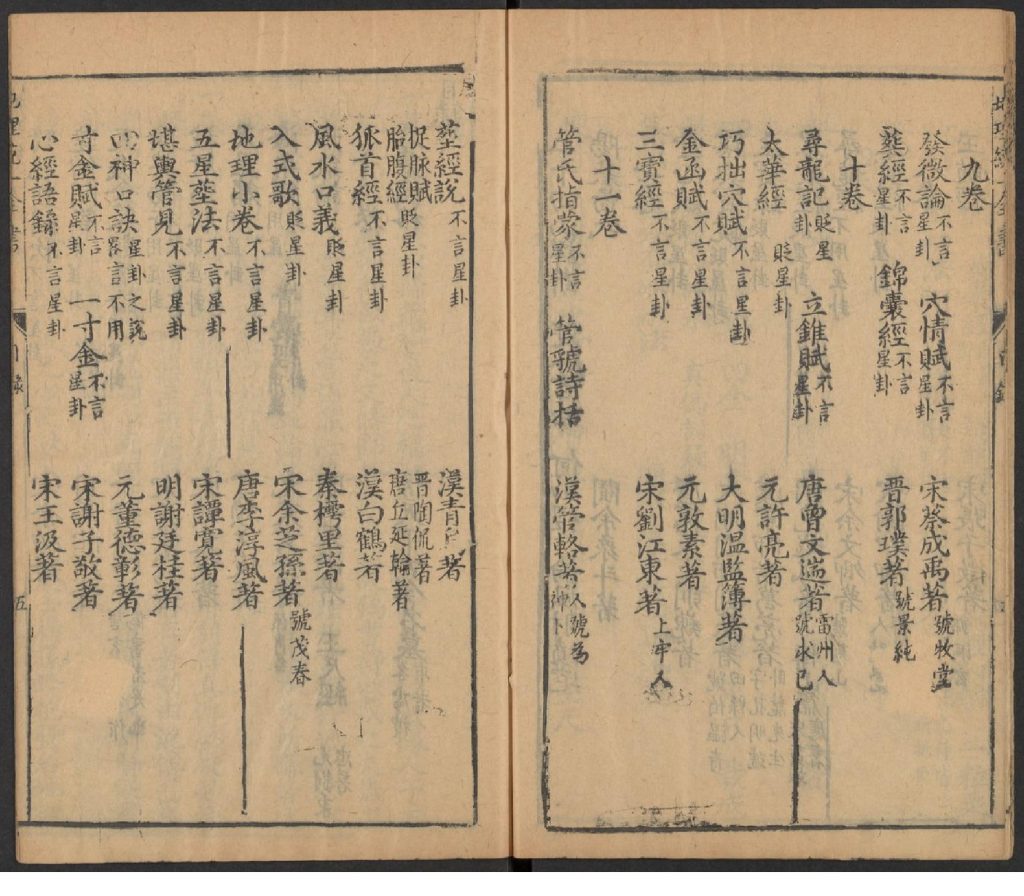 九卷
發微論 不言星卦 穴情賦 不言星卦 宋蔡成禹著 號牧堂
葬經 不言星卦 錦囊經 不言星卦 晋郭璞著 號景純
十卷
尋龍記 貶星卦 立錐賦 不言星卦 唐曾文遄著 雷州人號求已
太華經 貶星卦 元許亮著
巧拙穴賦 不言星卦 大明温監簿著
金函賦 不言星卦 元敦素著
三寳經 不言星卦 宋劉江東著 上牢人
十一卷
管氏指蒙 不言星卦 管虢詩括 漢管輅著 人號為神卜
葬經說 不言星卦 漢青 著
捉脉賦 晋陶侃著
胎腹經 貶星卦 唐丘延翰著
狐首經 不言星卦 漢白鶴著
風水口義 貶星卦 秦樗里著
入式歌 貶星卦 宋余芝孫著 號茂春
地理小卷 不言星卦 唐李淳風著
五星葬法 不言星卦 宋譚寛著
堪輿管見 不言星卦 明謝廷桂著
神口訣 星卦之說畧言不用 元董德彰著
寸金賦 不言星卦 一寸金 不言星卦 宋謝子敬著
心經語錄 不言星卦 宋王汲著
目錄
五